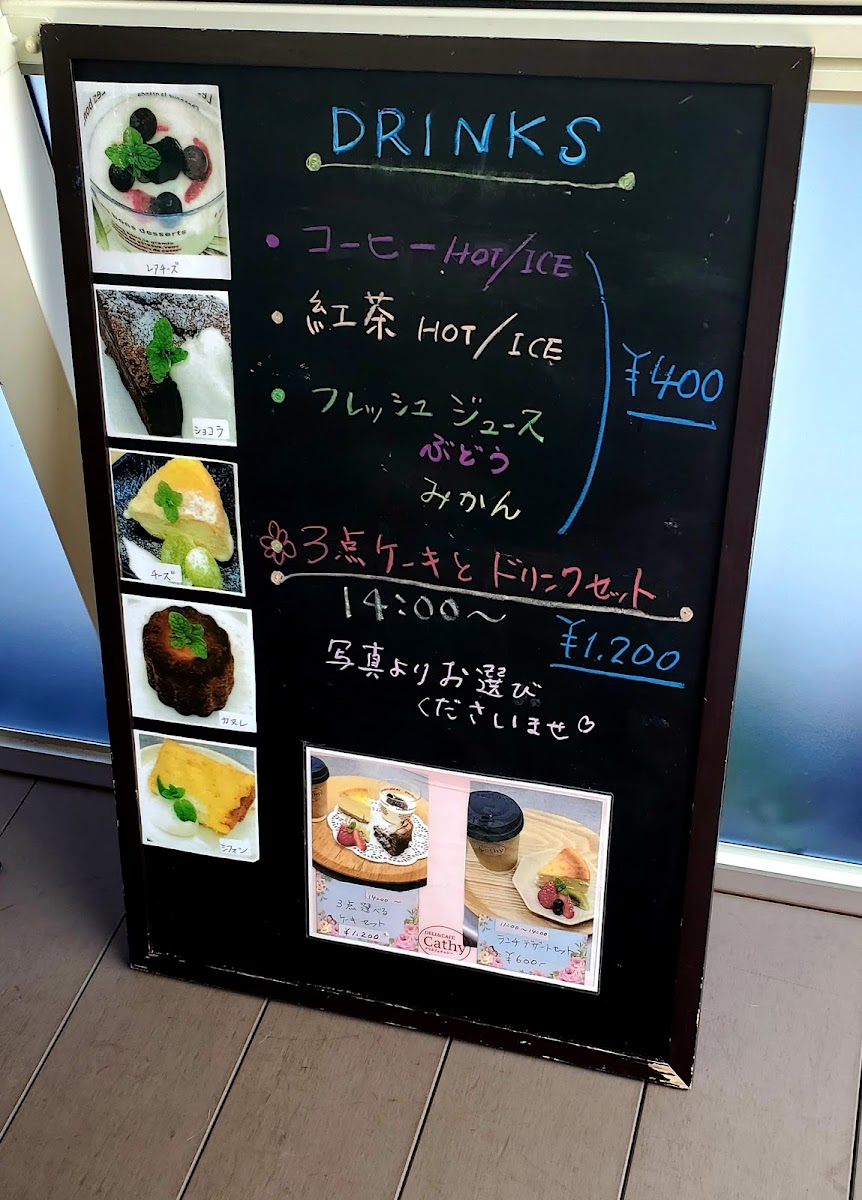 DRINKS
・コーヒー HOT/ICE
・紅茶 HOT/ICE
・フレッシュ ジュース
ぶどう
みかん
¥400
3点ケーキと ドリンクセット
14:00～
¥1.200
写真よりお選び
くださいませ
bons desserts
レアチーズ
ショコラ
チーズ
カヌレ
シフォン
14:00～
3点選べる
ケーキセット
¥1.200
DELI&CAFE
Cathy
11:00～14:00
ランチデザートセット
¥600-